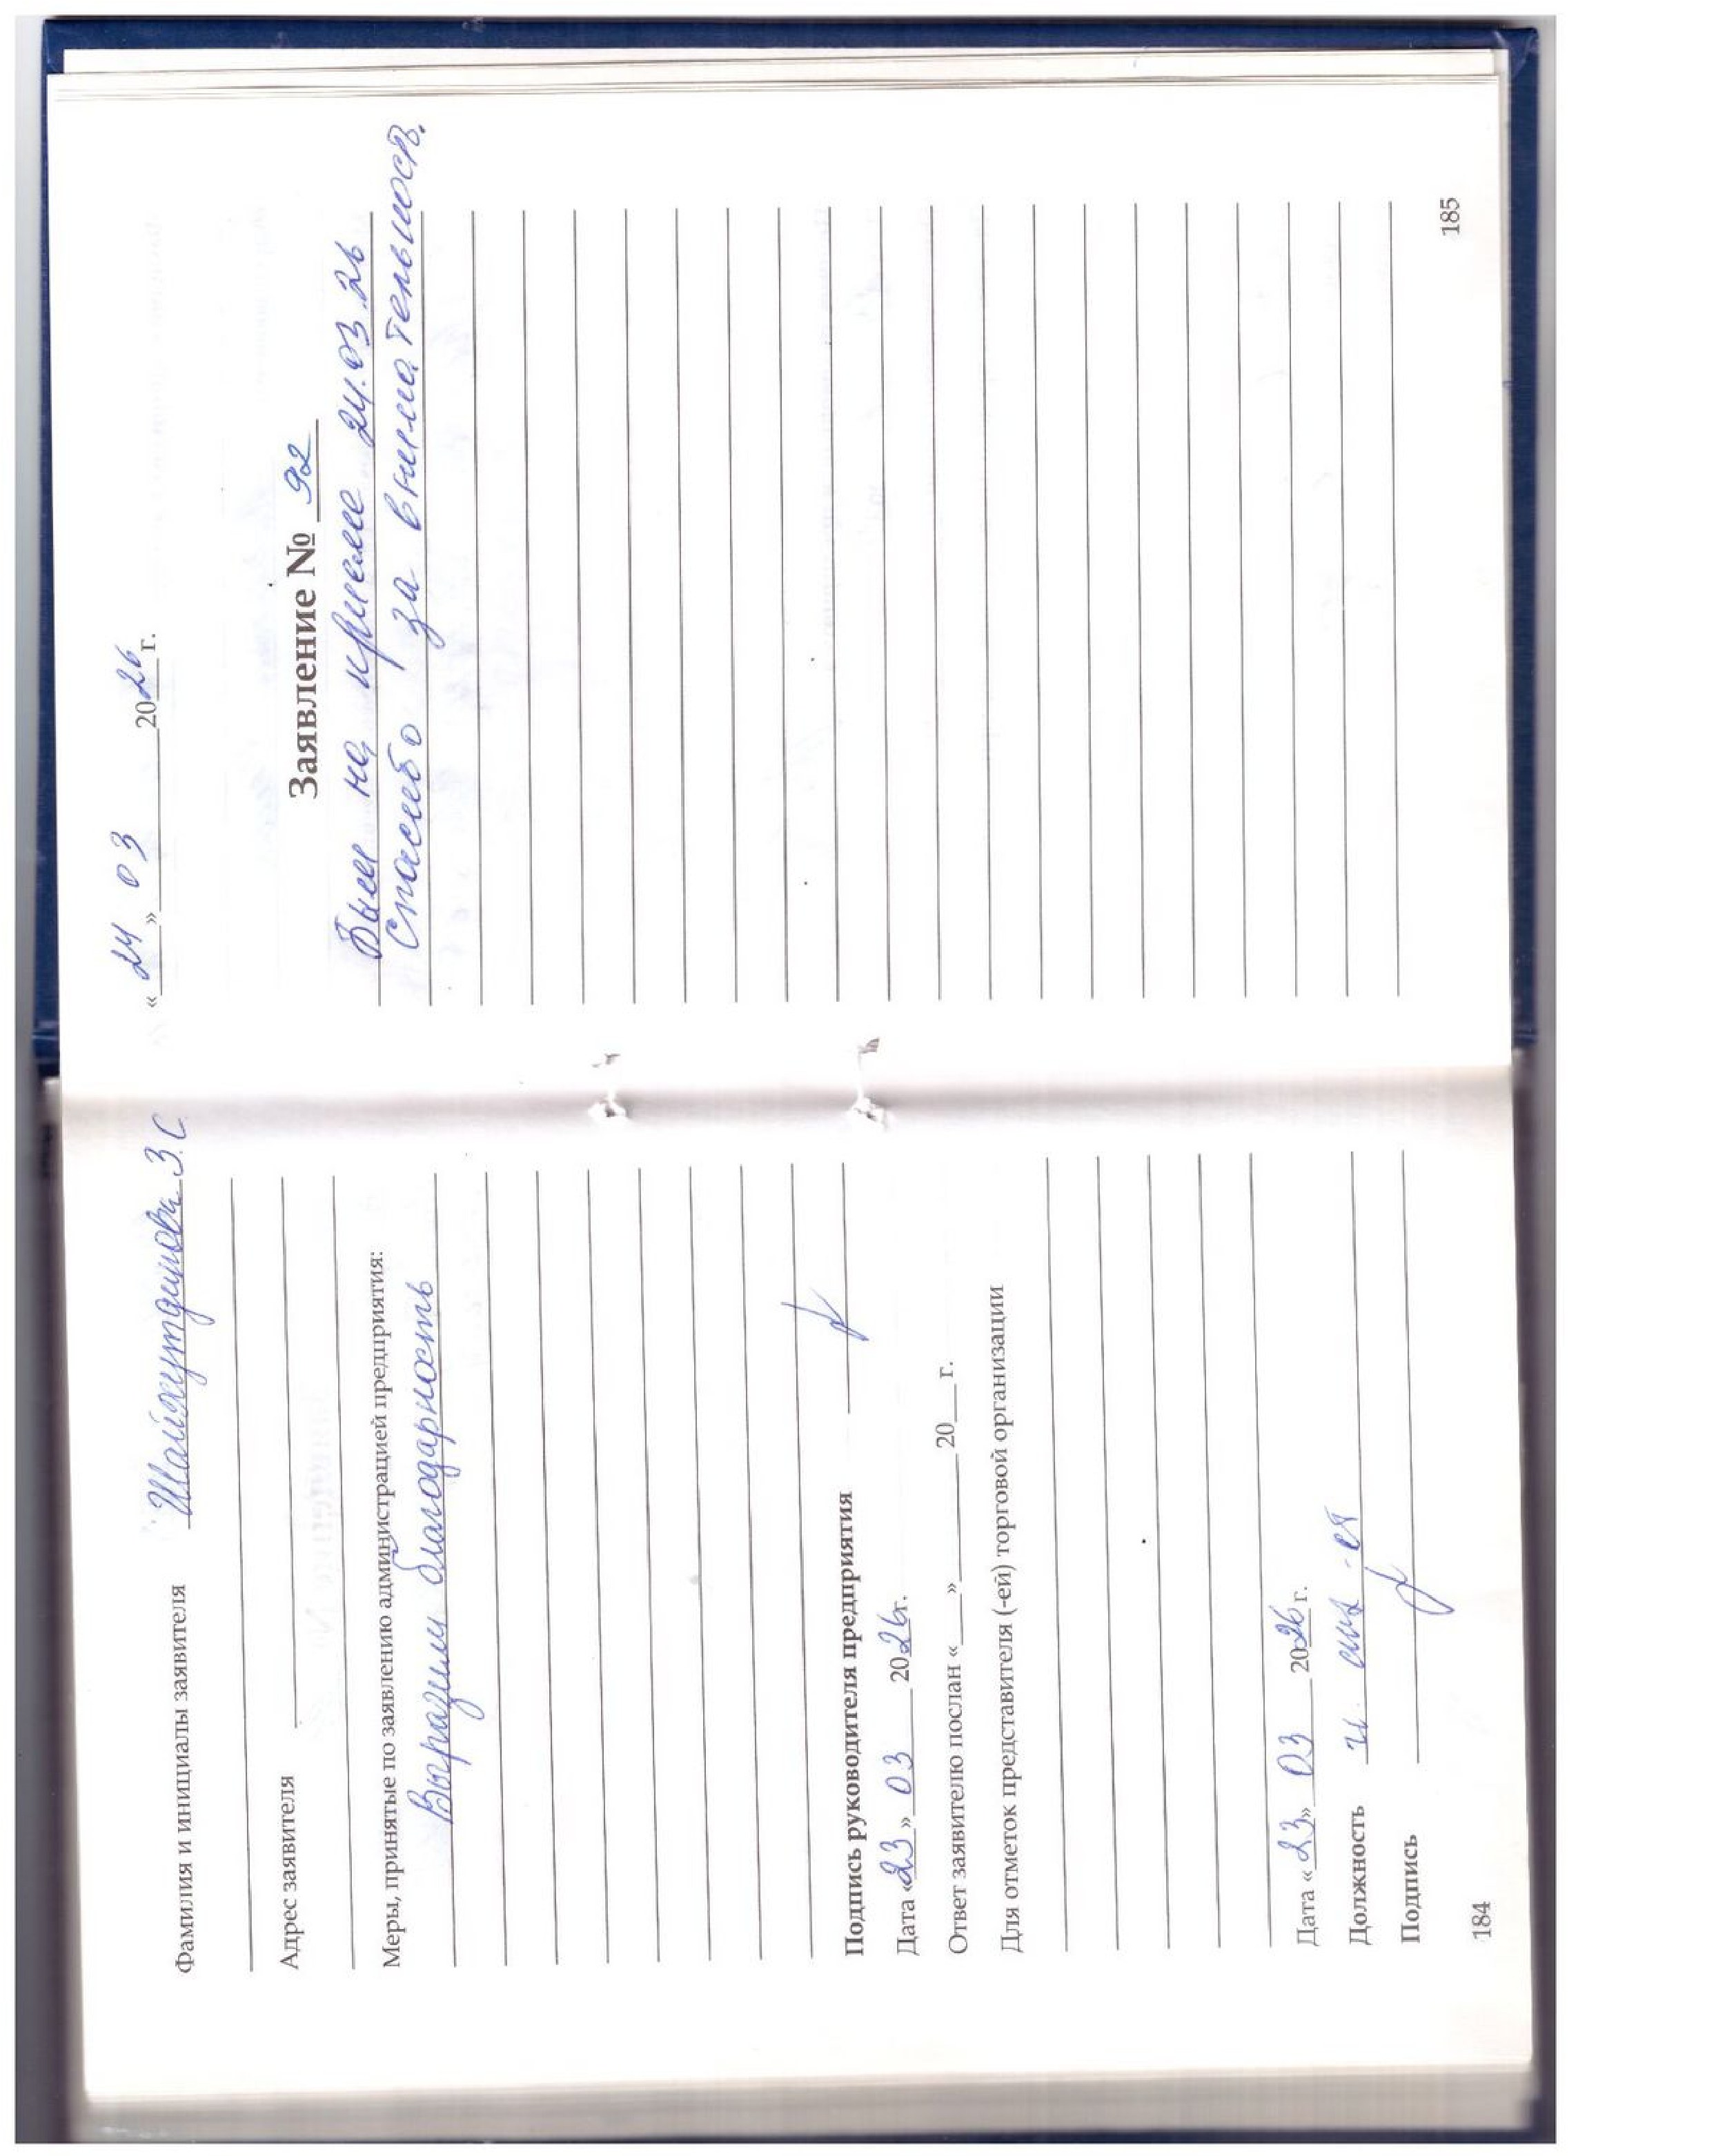 Фамилия и инициалы заявителя Шайхутдинова З.С
Адрес заявителя
Меры, принятые по заявлению администрацией предприятия:
Выразим благодарность
Подпись руководителя предприятия
Дата «23» 03 2026г.
Ответ заявителю послан «___»______20___г.
Для отметок представителя (-ей) торговой организации
Дата «23» 03 2026г.
Должность
Подпись
184
«24» 03 2026г.
Заявление № 92
Был на приеме 24.03.26
Спасибо за внимательность.
185